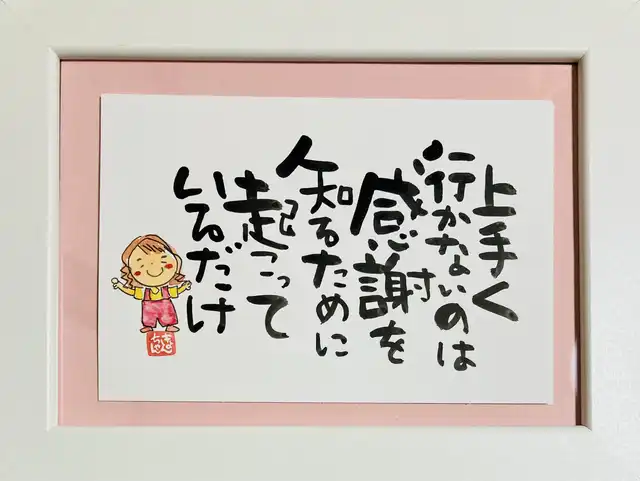 上手く
行かないのは
感謝を
知るために
起こって
いるだけ